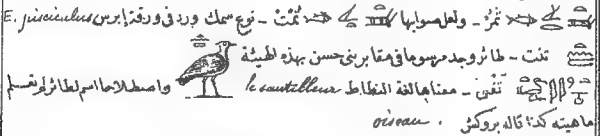 تَمْرُ - ولعل صوابها تَمْتْ - نوع سمك ورد فى ورقة إبرس E. pisciculus
تنت - طائر وجد مرسوما فى مقابر بنى حسن بهذه الهيئة
تَفْنِ - معناها لغة النطاط le sautilleur واصطلاحا اسم لطائر لم تعلم
ماهيته كذا قاله بروكش . oiseau.